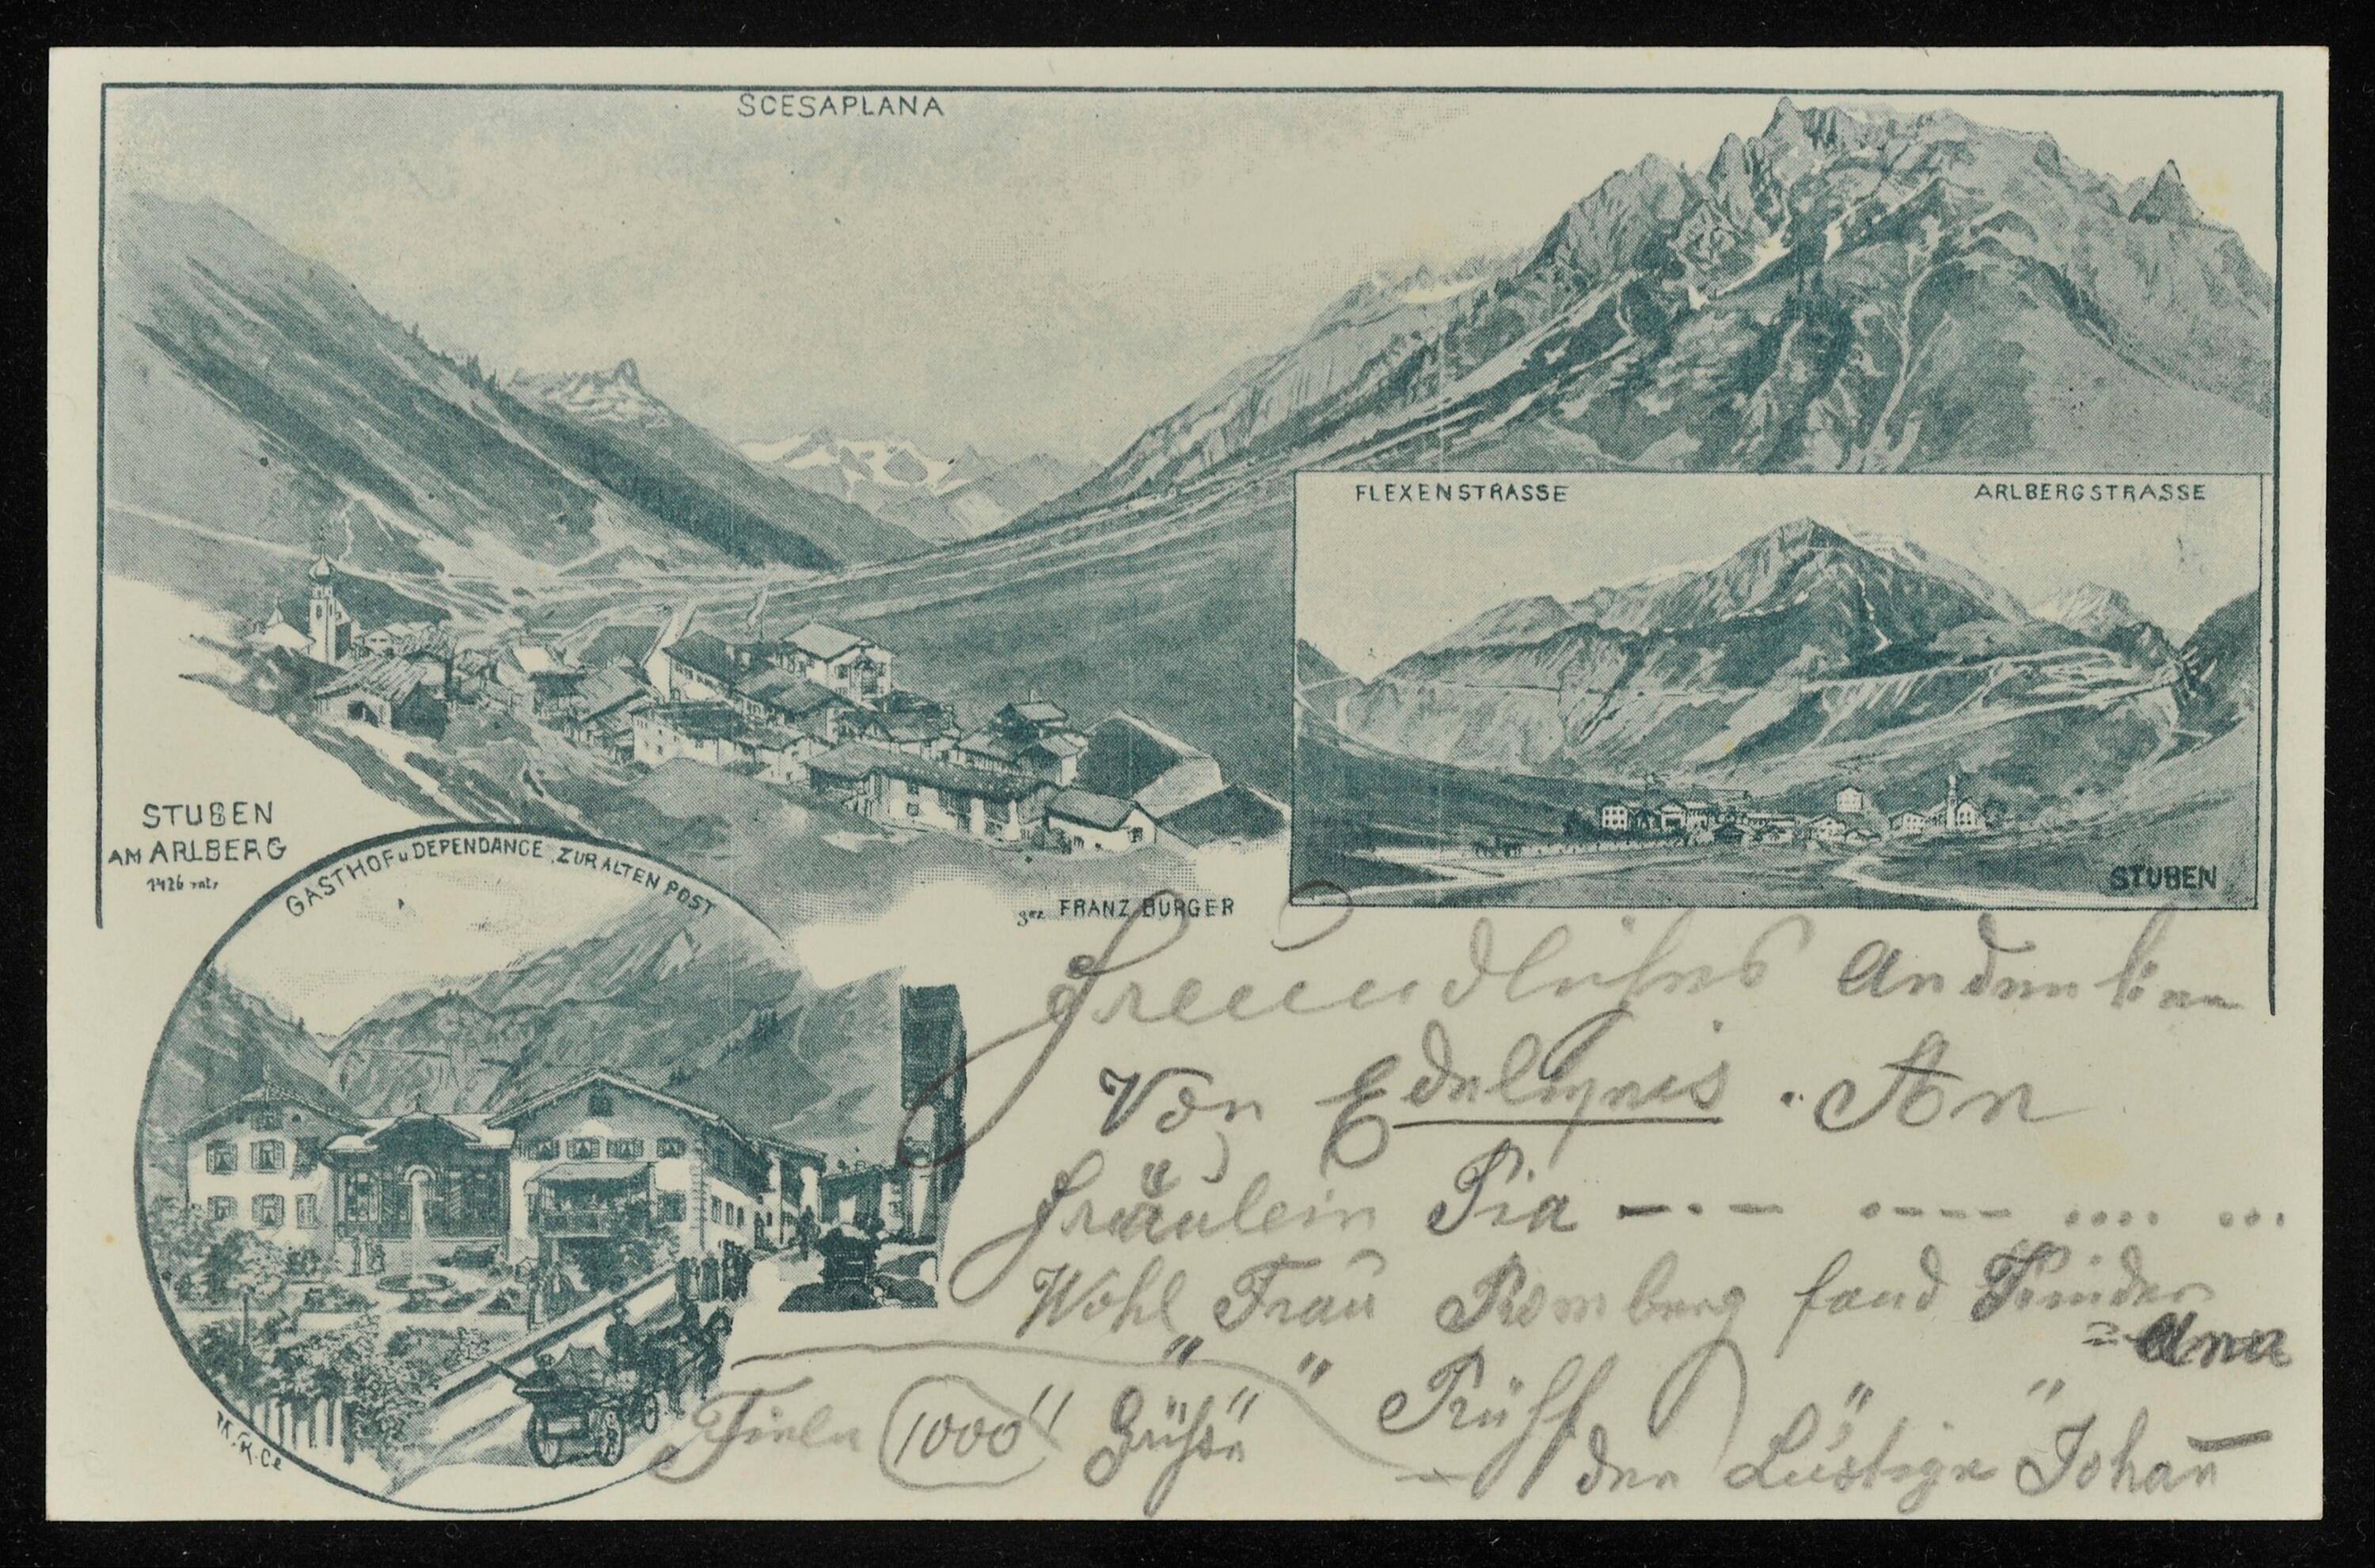 SCESAPLANA
FLEXENSTRASSE ARLBERGSTRASSE
STUBEN
STUBEN
AM ARLBERG
1426 mtr
GASTHOF u DEPENDANCE „ZUR ALTEN POST
gez FRANZ BURGER
Freundliches Andenken
Von Edelweis. An
Fräulein Pia —.— .---- .... ...
Wohl Frau Romberg sand Kinder
" " "
= Ana
Vieln 1000" Grüße
der Lustige Johan